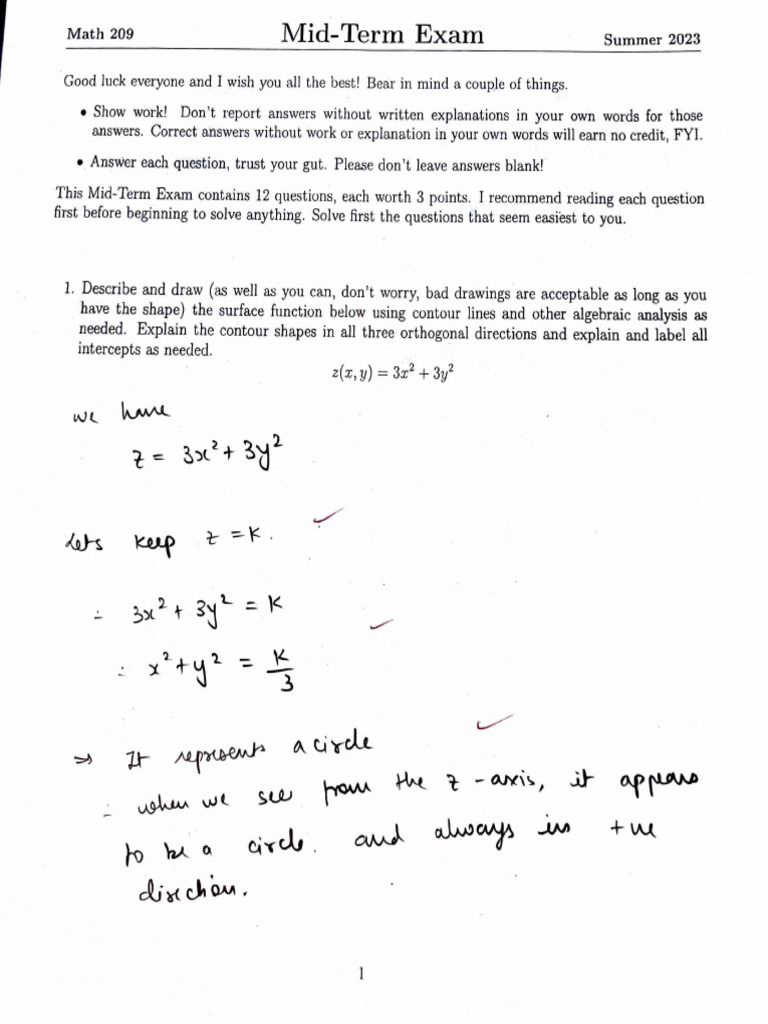 Math 209 Mid-Term Exam Summer 2023
Good luck everyone and I wish you all the best! Bear in mind a couple of things.
• Show work! Don't report answers without written explanations in your own words for those
answers. Correct answers without work or explanation in your own words will earn no credit, FYI.
• Answer each question, trust your gut. Please don't leave answers blank!
This Mid-Term Exam contains 12 questions, each worth 3 points. I recommend reading each question
first before beginning to solve anything. Solve first the questions that seem easiest to you.
1. Describe and draw (as well as you can, don't worry, bad drawings are acceptable as long as you
have the shape) the surface function below using contour lines and other algebraic analysis as
needed. Explain the contour shapes in all three orthogonal directions and explain and label all
intercepts as needed.
z(x, y) = 3x² + 3y²
we have
z = 3x² + 3y²
Lets keep z = K.
∴ 3x² + 3y² = K
∴ x² + y² = K/3
⇒ It represents a circle
∴ when we see from the z-axis, it appears
to be a circle. and always in +ve
direction.
1